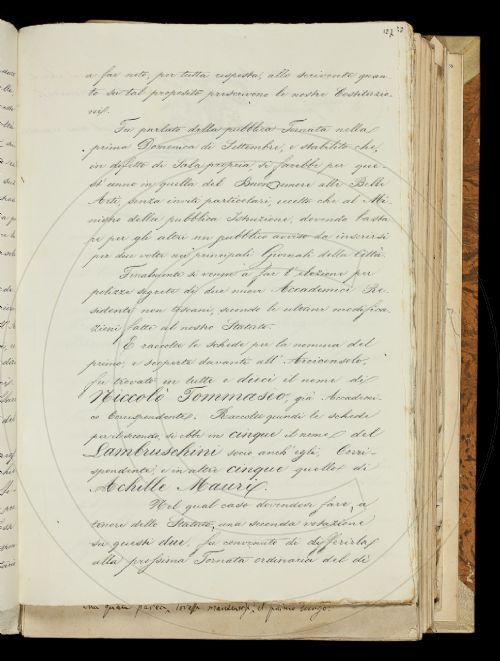 127 70
a far noto, per tutta risposta, allo scrivente quan-
to su tal proposito prescrivono le nostre Costituzio-
ni.
Fu parlato della pubblica Tornata nella
prima Domenica di Settembre, e stabilito che,
in difetto di Sala propria si farebbe per que-
st'anno in quella del Buonumore alle Belle
Arti, senza inviti particolari, eccetto che al Mi-
nistro della pubblica Istruzione, dovendo basta-
re per gli altri un pubblico avviso da inserirsi
per due volte nei principali Giornali della Città.
Finalmente si venne a far l'elezione per
polizze segrete di due nuovi Accademici Re-
sidenti non toscani, secondo le ultime modifica-
zioni fatte al nostro Statuto.
E raccolte le schede per la nomina del
primo, e scoperte davanti all'Arciconsolo,
fu trovato in tutte e dieci il nome di
Niccolò Tommaseo, già Accademi-
co Corrispondente. Raccolte quindi le schede
per il secondo, si ebbe in cinque il nome del
Lambruschini socio anch'egli Corri-
spondente, e in altre cinque quello di
Achille Mauri.
Nel qual caso dovendosi fare, a
tenore dello Statuto, una seconda votazione
su questi due, fu convenuto di differirla
alla prossima Tornata ordinaria del dì